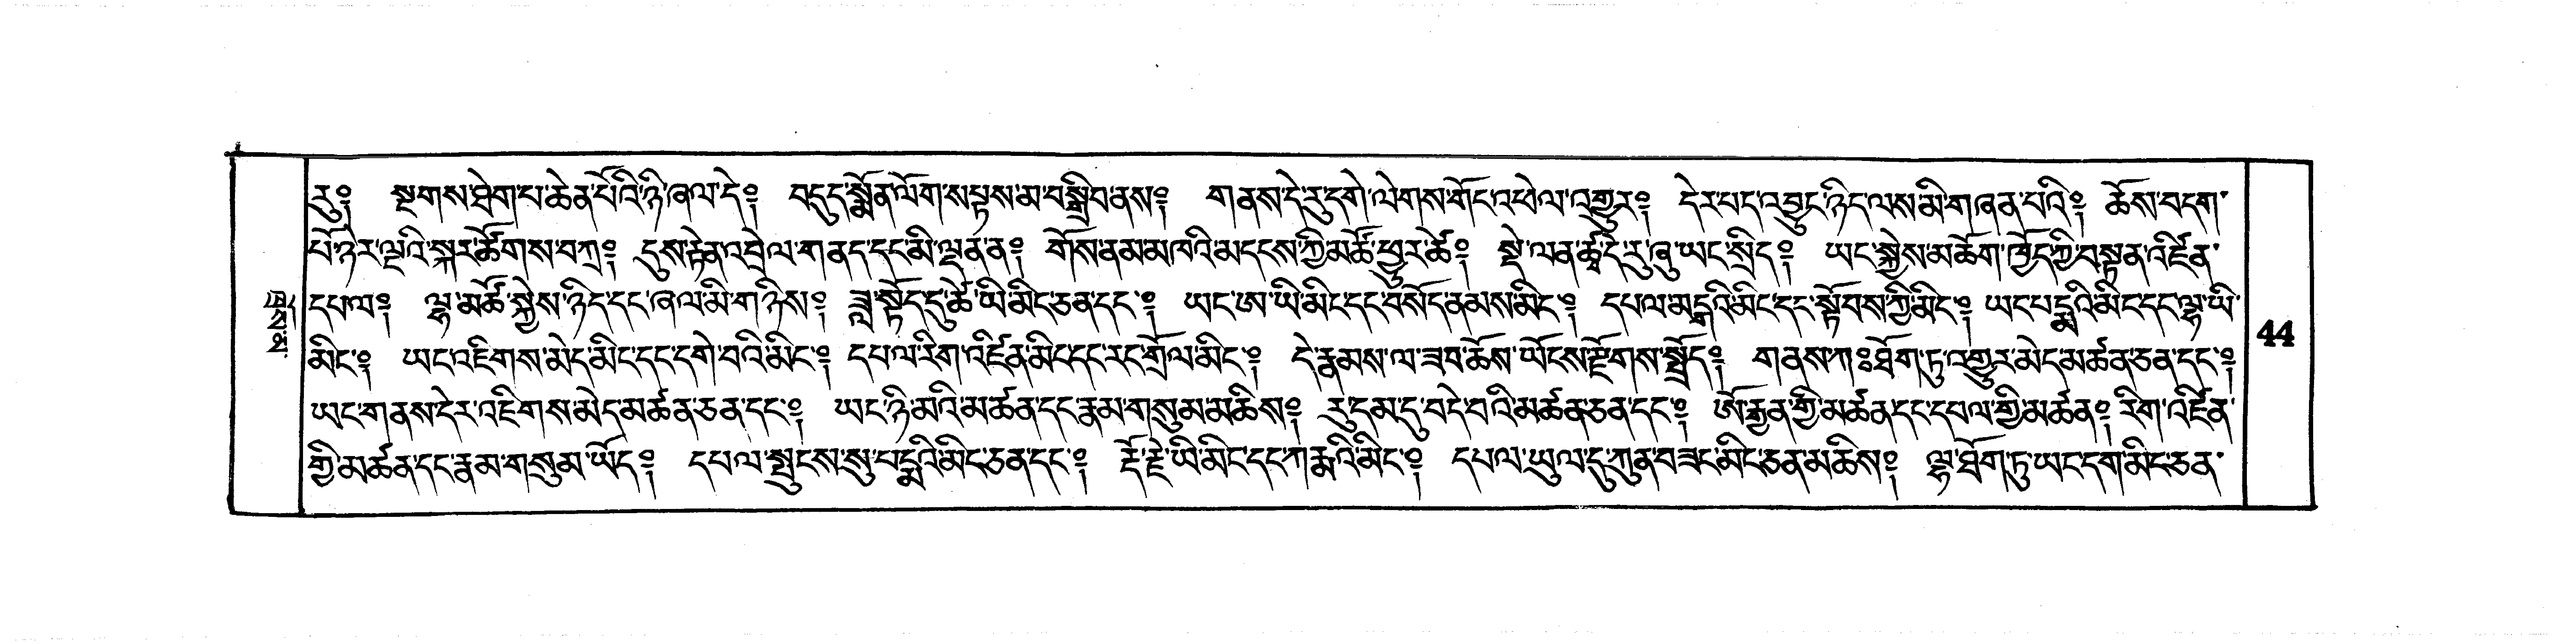 རུ༔ སྔགས་ཐེག་པ་ཆེན་པོའི་ཉི་ཞལ་དེ༔ བདུད་སྨོན་ལོག་སཔྟས་མ་བསྒྲིབ་ནས༔ གནས་དེ་རུ་དགེ་ལེགས་གོང་འཕེལ་འགྱུར༔ དེར་པད་འབྱུང་ཉིད་ལས་མི་གཞན་པའི༔ ཆོས་བདག་
པོ་ཉེར་ལྔའི་སྐར་ཚོགས་བཀྲ༔ དུས་རྟེན་འབྲེལ་གནད་དང་མི་ལྡན་ན༔ གོས་ནམ་མཁའི་མདངས་ཀྱི་མཚོ་ཕྱུར་ཚེ༔ སྡེ་ལན་ཚྭ་དེ་རུ་ཞུ་ཡང་སྲིད༔ ཡང་སྐྱེས་མཆོག་ཁྱོད་ཀྱི་བསྟན་འཛིན་
དཔལ༔ ལྷ་མཚོ་སྐྱེས་ཉིད་དང་ཞལ་མི་གཉིས༔ ཟླ་སྟོད་དུ་ཚེ་ཡི་མིང་ཅན་དང་༔ ཡང་ཨ་ཡི་མིང་དང་བསོད་ནམས་མིང་༔ དཔལ་མདྲའི་མིང་དང་སྟོབས་ཀྱི་མིང་༔ ཡང་པདྨའི་མིང་དང་ལྷ་ཡི་
མིང་༔ ཡང་འཇིགས་མེད་མིང་དང་དགེ་བའི་མིང་༔ དཔལ་རིག་འཛིན་མིང་དང་རང་གྲོལ་མིང་༔ དེ་རྣམས་ལ་ཟབ་ཆོས་ཡོངས་རྫོགས་སྤྲོད༔ གནས་ཀཿཐོག་ཏུ་འགྱུར་མེད་མཚན་ཅན་དང་༔
ཡང་གནས་དེར་འཇིགས་མེད་མཚན་ཅན་དང་༔ ཡང་ཉི་མའི་མཚན་དང་རྣམ་གསུམ་མཆིས༔ རུ་དམ་དུ་བདེ་བའི་མཚན་ཅན་དང་༔ ཨོ་རྒྱན་གྱི་མཚན་དང་དཔལ་གྱི་མཚན༔ རིག་འཛིན་
གྱི་མཚན་དང་རྣམ་གསུམ་ཡོད༔ དཔལ་སྤུངས་སུ་པདྨའི་མིང་ཅན་དང་༔ རྡོ་རྗེ་ཡི་མིང་དང་ཀརྨའི་མིང་༔ དཔལ་ཡུལ་དུ་ཀུན་བཟང་མིང་ཅན་མཆིས༔ ལྷ་ཐོག་ཏུ་ཡང་དག་མིང་ཅན་
44